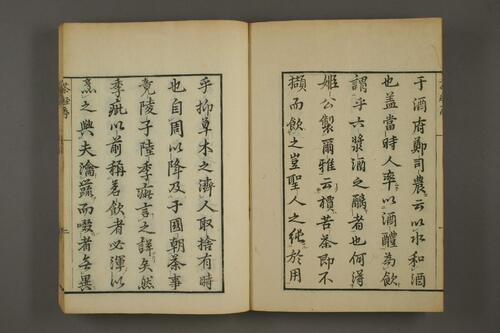 于酒府鄭司農云以水和酒
也盖當時人率以酒醴為飲
謂乎六漿酒之醨者也何得
姬公製爾雅云檟苦荼即不
擷而飲之豈聖人之純於用
乎抑草木之濟人取捨有時
也自周以降及于國朝茶事
竟陵子陸季疵言之詳矣然
季疵以前稱茗飲者必渾以
烹之與夫瀹蔬而啜者無異
茶經序
二